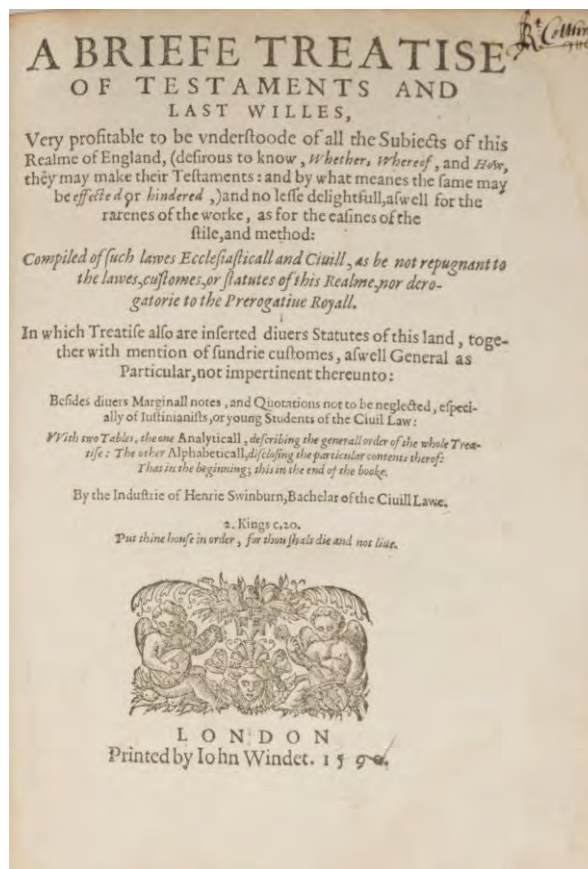 Rt. Collin
A BRIEFE TREATISE
OF TESTAMENTS AND
LAST WILLES,
Very profitable to be vnderſtoode of all the Subiects of this
Realme of England, (deſirous to know, Whether, Whereof, and How,
they may make their Teſtaments: and by what meanes the ſame may
be effected or hindered,) and no leſſe delightfull, aſwell for the
rarenes of the worke, as for the eaſines of the
ſtile, and method:
Compiled of ſuch lawes Eccleſiaſticall and Ciuill, as be not repugnant to
the lawes, cuſtomes, or ſtatutes of this Realme, nor dero-
gatorie to the Prerogatiue Royall.
In which Treatiſe alſo are inſerted diuers Statutes of this land, toge-
ther with mention of ſundrie cuſtomes, aſwell General as
Particular, not impertinent thereunto:
Beſides diuers Marginall notes, and Quotations not to be neglected, eſpeci-
ally of Iuſtinianiſts, or young Students of the Ciuil Law:
With two Tables, the one Analyticall, deſcribing the generall order of the whole Trea-
tiſe: The other Alphabeticall, diſcloſing the particular contents therof:
That in the beginning; this in the end of the booke.
By the Induſtrie of Henrie Swinburn, Bachelar of the Ciuill Lawe.
2. Kings c.20.
Put thine houſe in order, for thou ſhalt die and not liue.
LONDON
Printed by Iohn Windet. 1590.